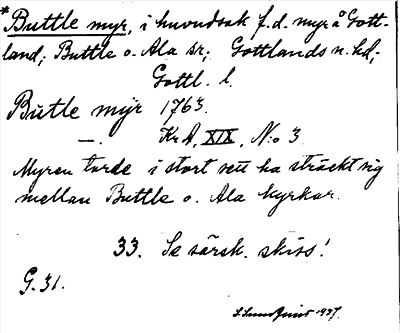 *Buttle myr, i huvudsak f.d. myr å Gott-
land; Buttle o. Ala sr; Gottlands n. hd;
Gottl. l.
Butle myr 1763.
—. Kr A, XIX, N:o 3
Myren torde i stort sett ha sträckt sig
mellan Buttle o. Ala kyrkor.
33. Se särsk. skiss!
G. 31.
1937.